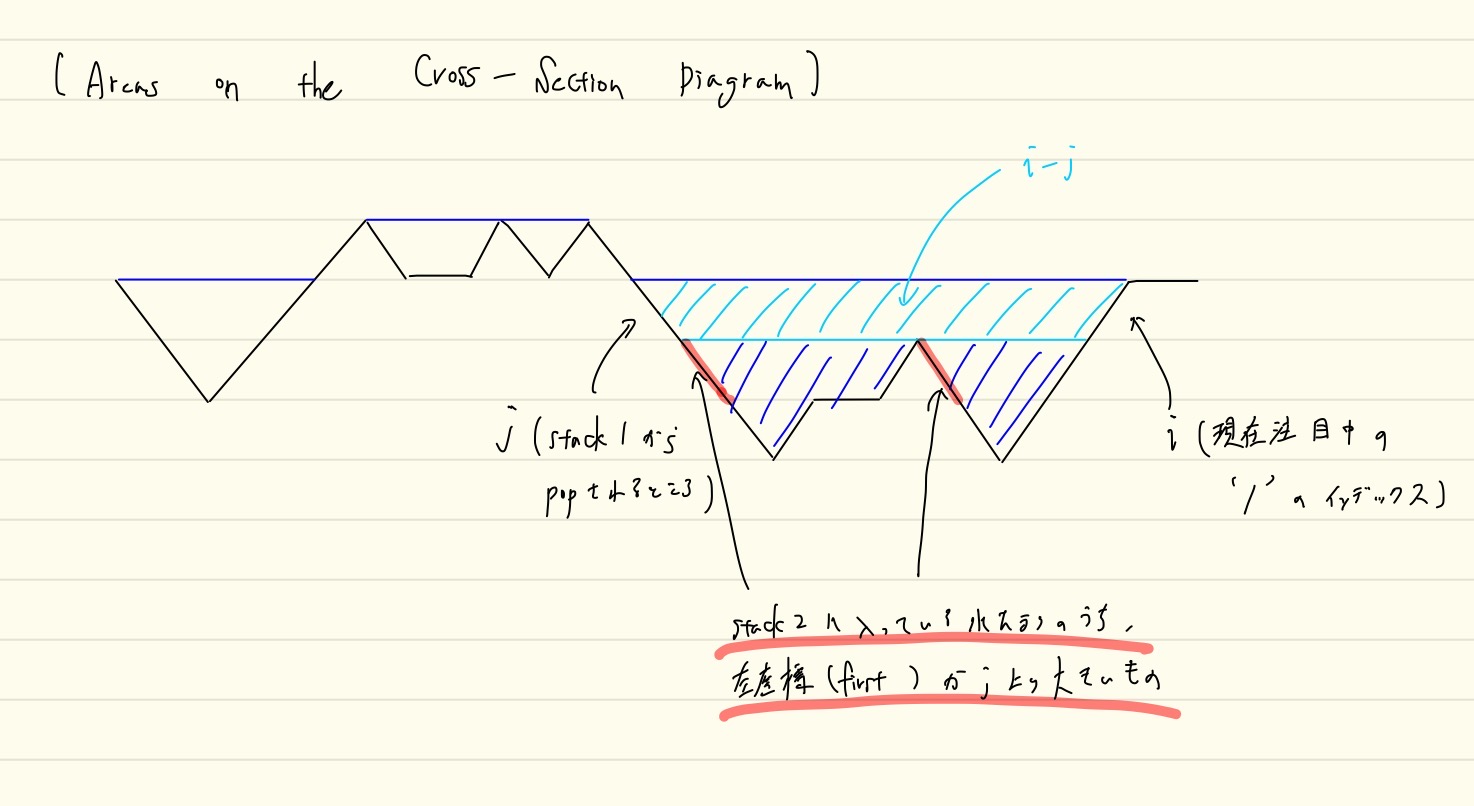 (Areas on the Cross-Section Diagram)
i-j
j (stack1から
popされるところ)
i (現在注目中の
'/'のインデックス)
stack2に入っている水たまりのうち、
左座標(first)がjより大きいもの